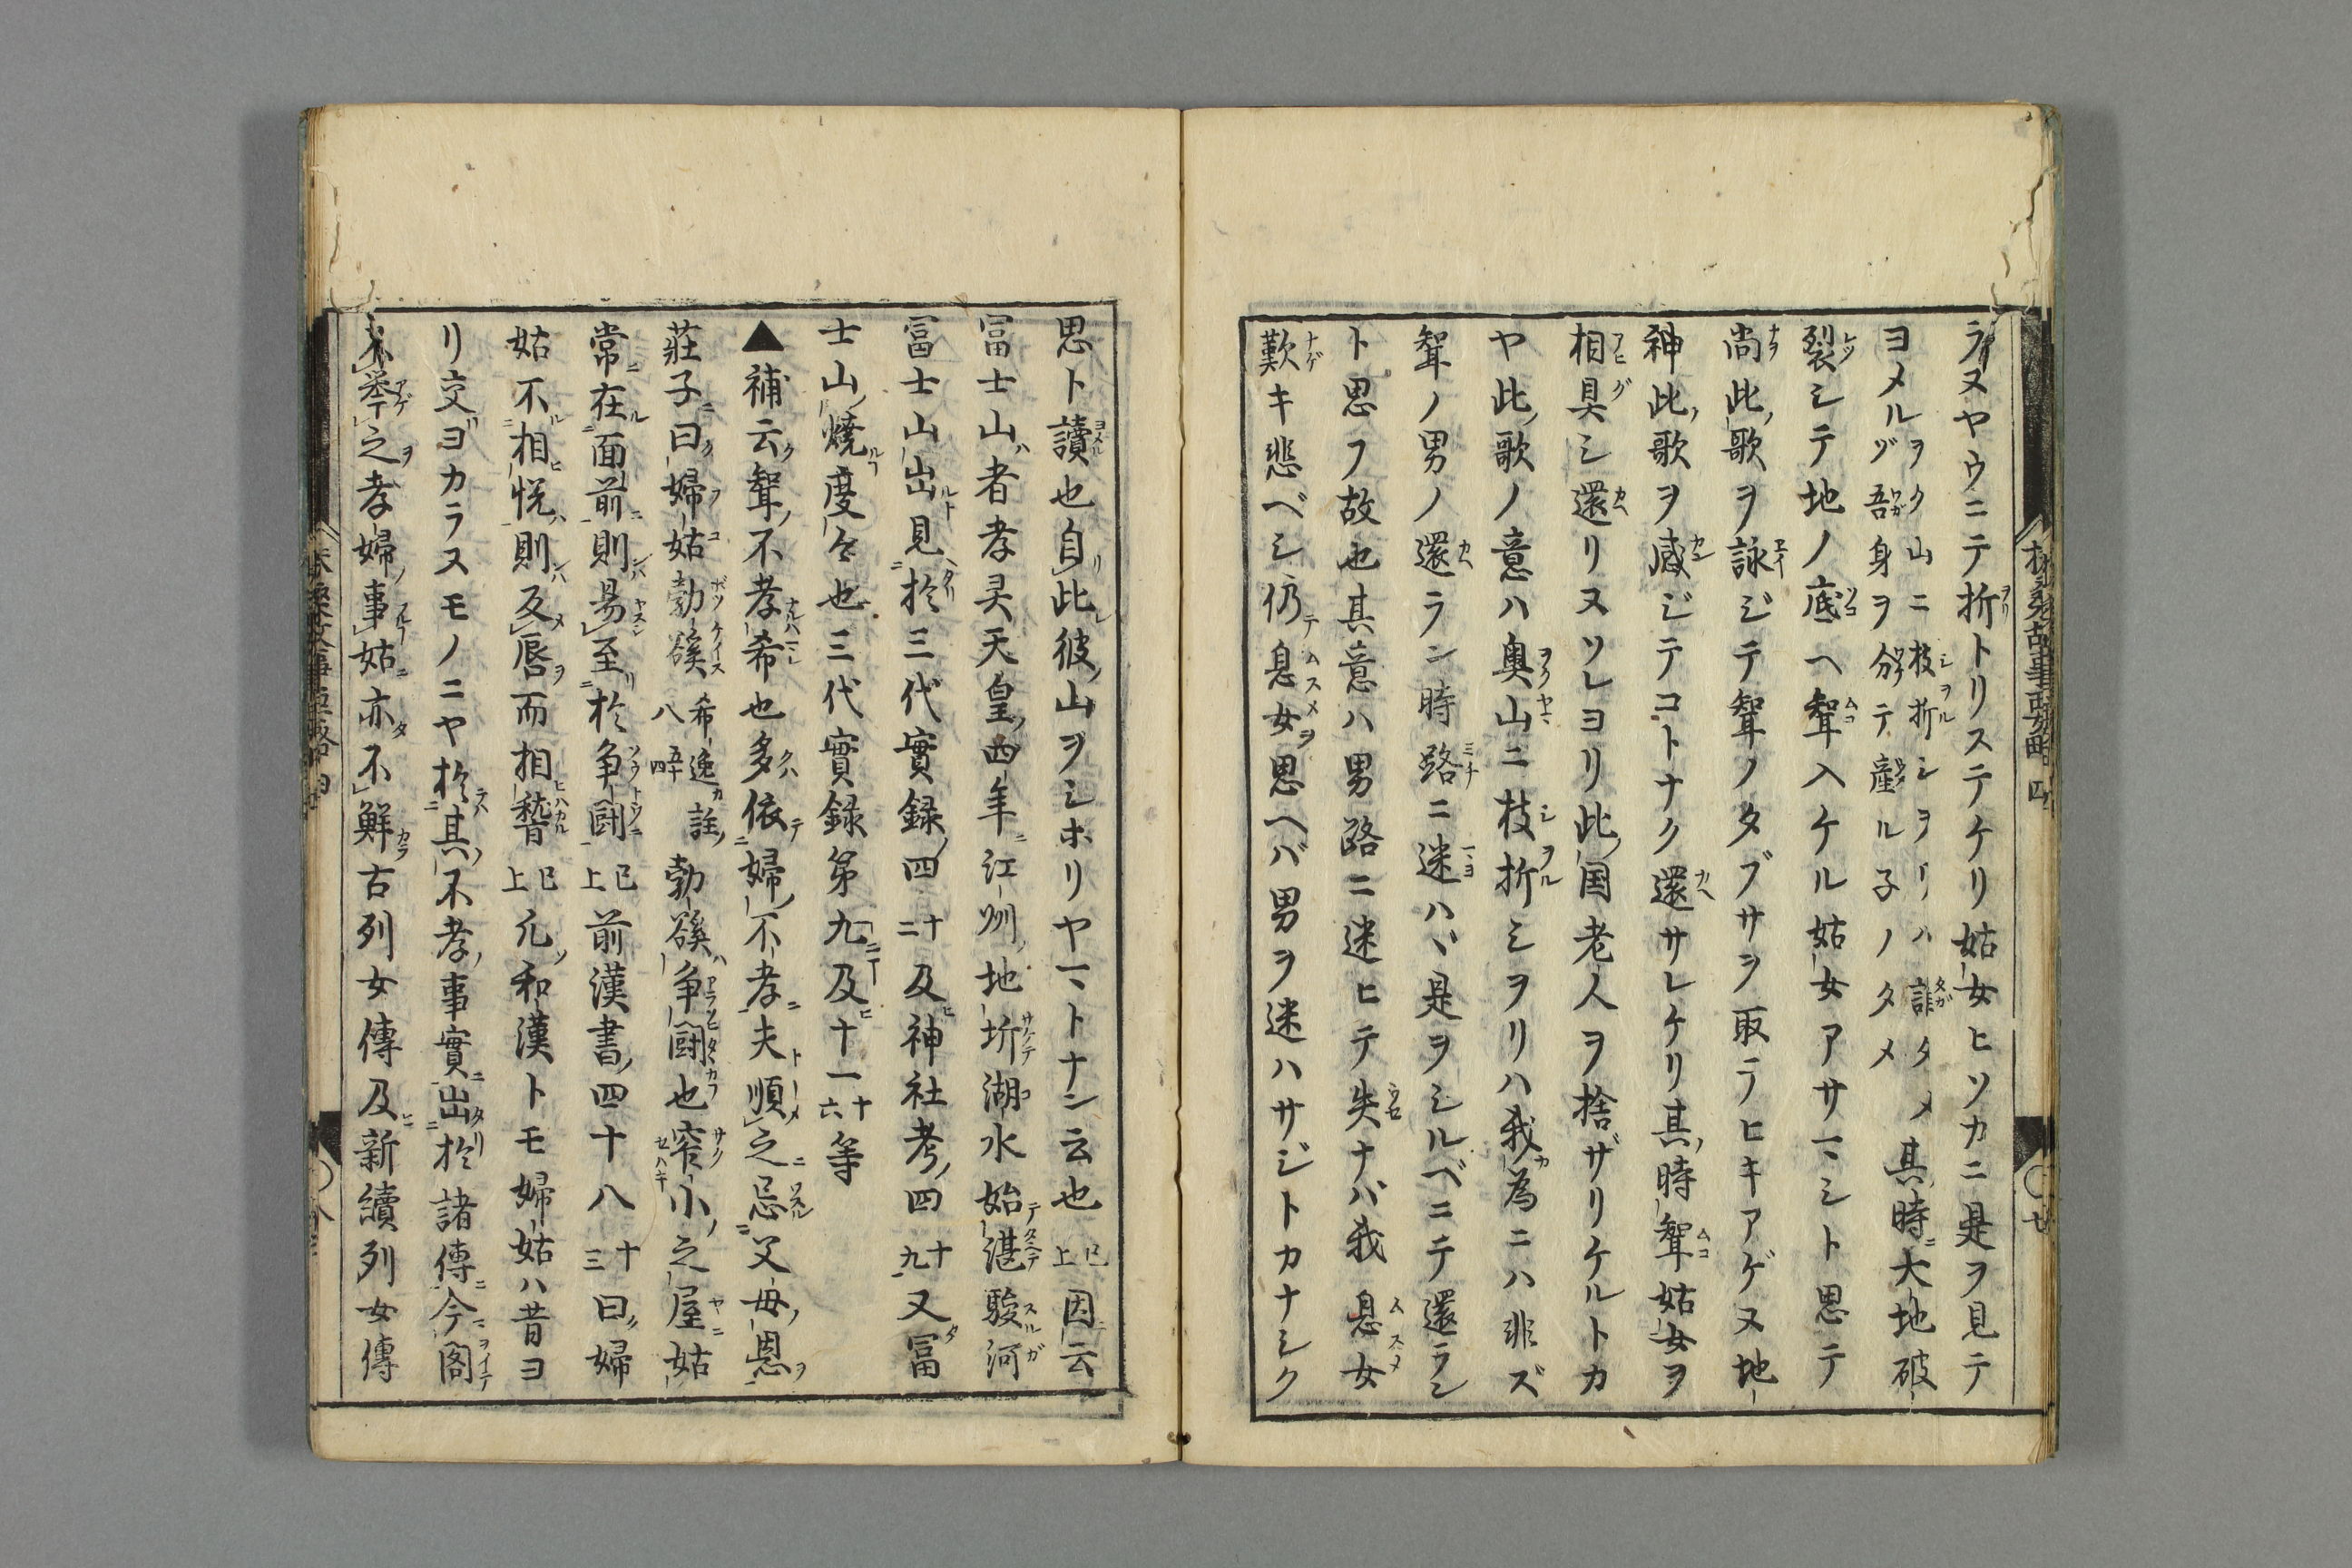 ラヌヤウニテ折トリステケリ姑女ヒソカニ是ヲ見テ
ヨメルヲク山ニ枝折シヲリハ誰タメ
ヅ吾身ヲ分テ産ル子ノタメ
其時大地破
裂シテ地ノ底ヘ聟入ケル姑女アサマシト思テ
尚此歌ヲ詠ジテ聟ノタブサヲ取テヒキアゲヌ地
神此歌ヲ感ジテコトナク還サレケリ其時聟姑女ヲ
相具シ還リヌソレヨリ此国老人ヲ捨ザリケルトカ
ヤ此歌ノ意ハ奥山ニ枝折シヲリハ我為ニハ非ズ
聟ノ男ノ還ラン時路ニ迷ハヾ是ヲシルベニテ還ラン
ト思フ故也其意ハ男路ニ迷ヒテ失ナバ我息女
歎キ悲ベシ仍息女ヲ思ヘバ男ヲ迷ハサジトカナシク
思ト讀也自此彼山ヲシホリヤマトナン云也已上因云
冨士山者孝灵天皇四年江州地坼湖水始湛駿河
冨士山出見於三代實録四十二及神社考四十九又冨
士山燒度々也三代實録第九及十一十六等
▲補云聟不孝希也多依婦不孝夫順之忌父母恩
莊子曰婦姑勃谿希逸註八五十四勃谿争闘也窄小之屋姑
常在面前則易至於争闘已上前漢書四十八十三曰婦
姑不相悦則反唇而相稽已上凡和漢トモ婦姑ハ昔ヨ
リ交ヨカラヌモノニヤ於其不孝事實出於諸傳今閣
不挙之孝婦事姑亦不鮮古列女傳及新續列女傳